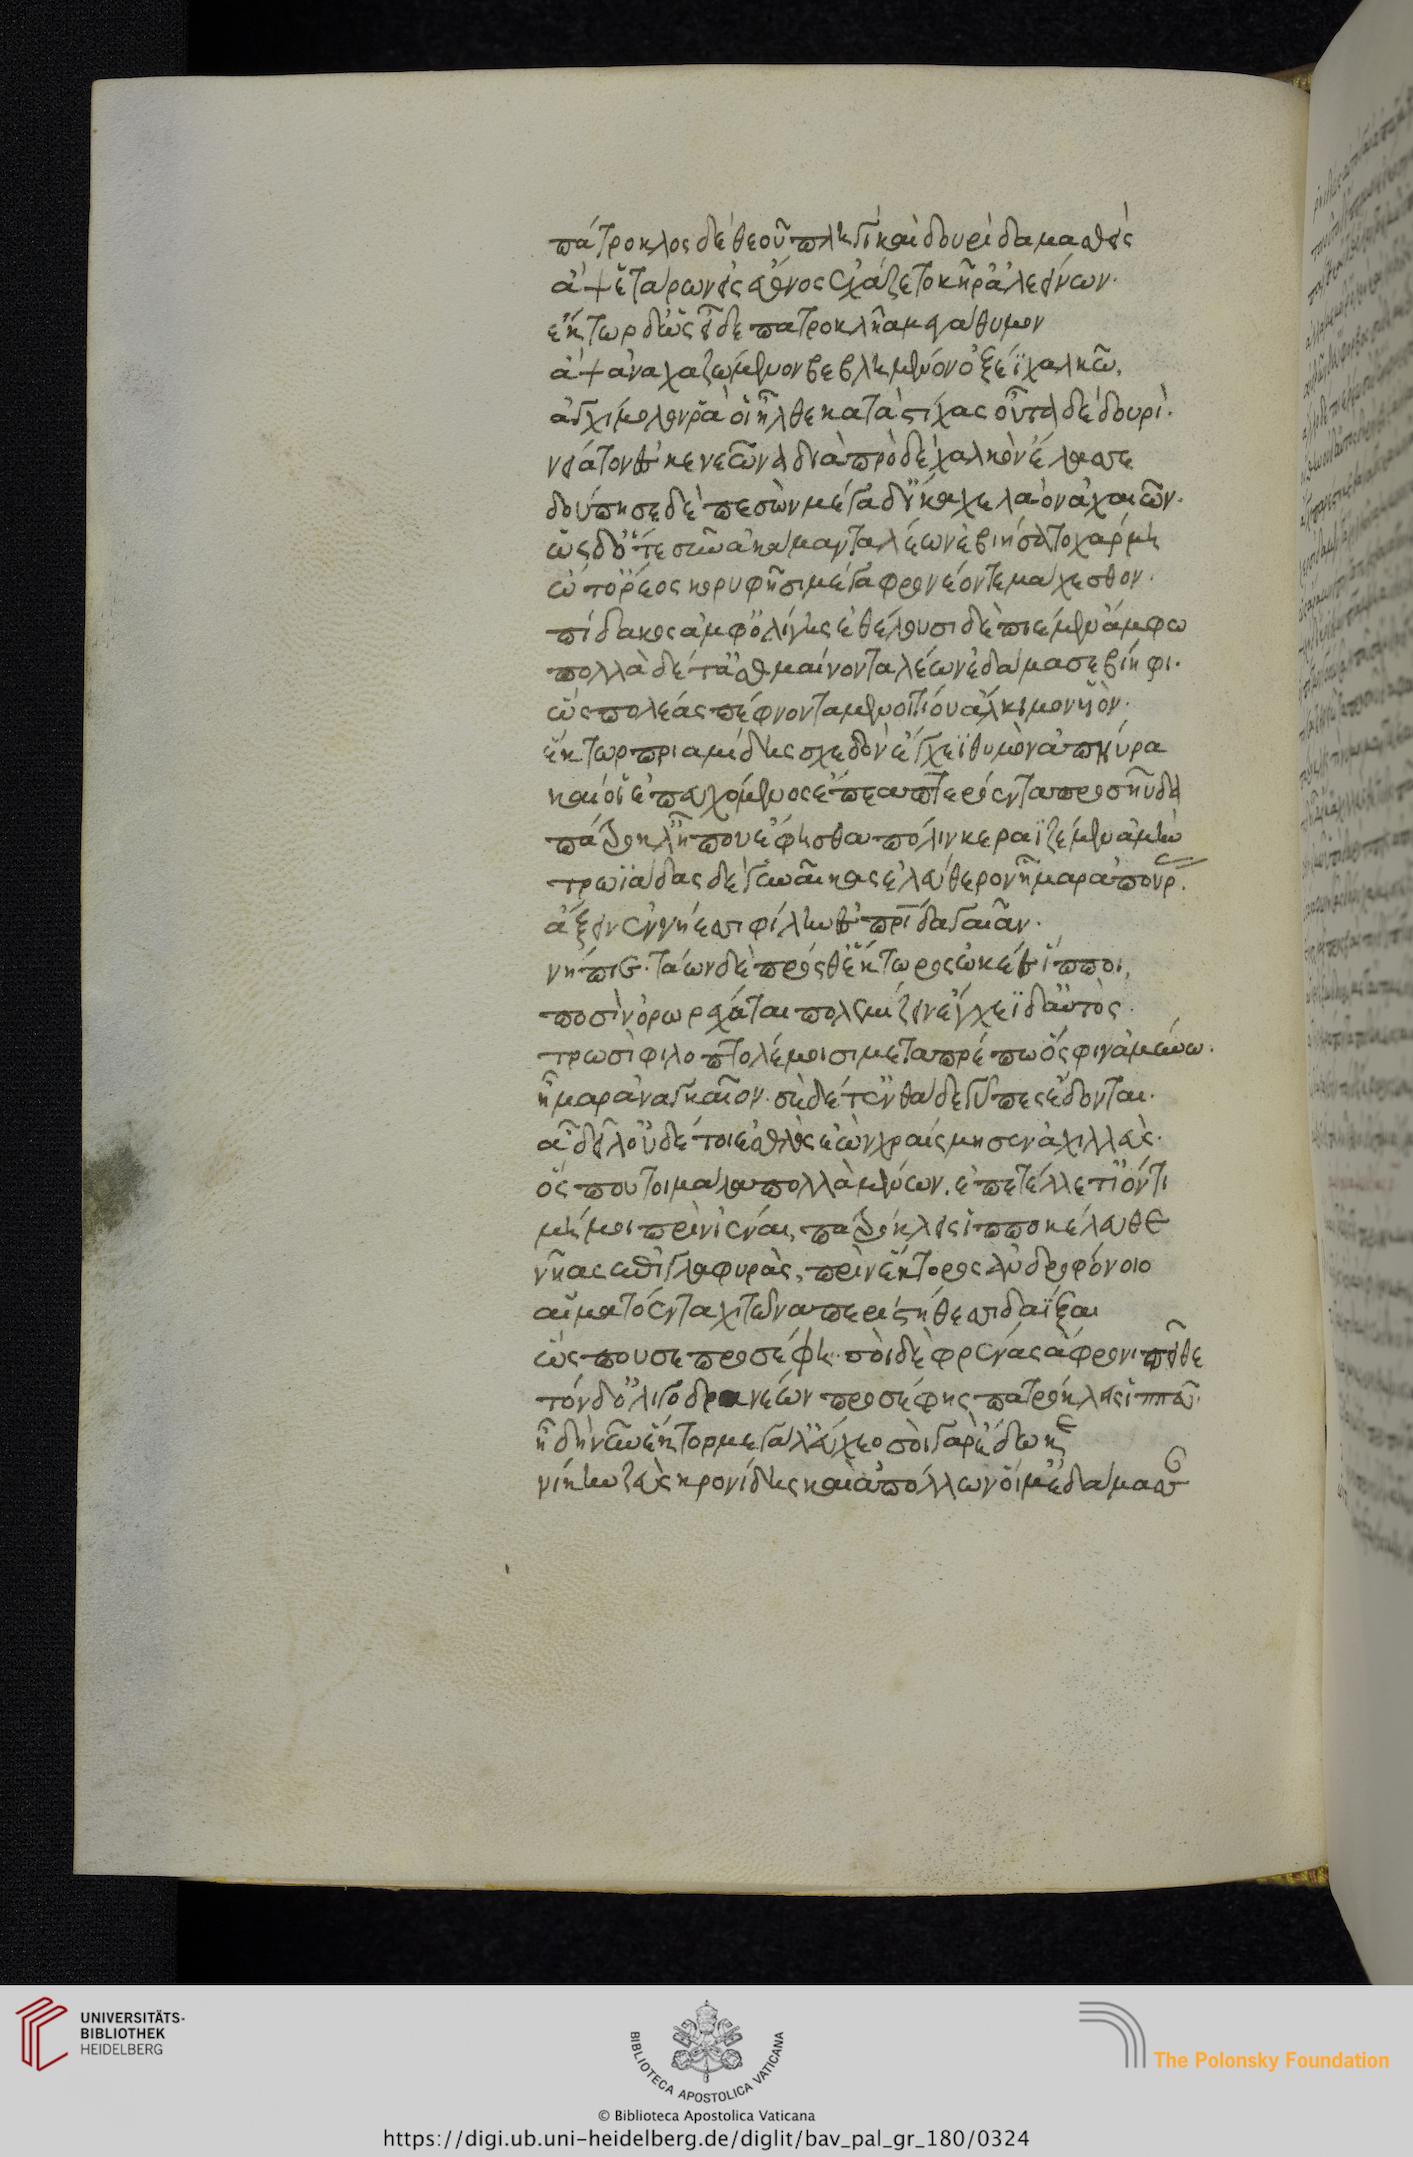 πάτροκλος δὲ θεοῦ πληγῆ καὶ δουρὶ δαμασθεὶς
ἂψ ἑτάρων εἰς ἔθνος ἐχάζετο κῆρ' ἀλεείνων.
ἕκτωρ δ' ὡς εἶδε πατροκλῆα μεγάθυμον
ἂψ ἀναχαζώμενον βεβλημένον ὀξέϊ χαλκῶ,
ἀγχίμολον ῥά οἱ ἦλθε κατὰ στίχας οὖτα δὲ δουρὶ.
νείατον ἐς κενεῶνα διὰ πρὸ δὲ χαλκὸν ἔλασσε
δούπησε δὲ πεσὼν μέγα δ' ἤκαχε λαὸν ἀχαιῶν.
ὡς δ' ὅτε σῦν ἀκάμαντα λέων ἐβιήσατο χάρμη
ὥ τ' ὄρεος κορυφῆσι μέγα φρονέοντε μάχεσθον.
πίδακος ἀμφ' ὀλίγης ἐθέλουσι δὲ πιέμεν ἄμφω
πολλὰ δέ τ' ἀσθμαίνοντα λέων ἐδάμασε βίηφι.
ὣς πολέας πέφνοντα μενοιτίου ἄλκιμον υἱὸν.
ἕκτωρ πριαμίδης σχεδὸν ἔγχεϊ θυμὸν ἀπηύρα
καί οἱ ἐπευχόμενος ἔπεα πτερόεντα προσηύδα
πάτροκλ' ἦ που ἔφησθα πόλιν κεραϊζέμεν ἀμὴν
τρωϊάδας δὲ γυναῖκας ἐλεύθερον ἦμαρ ἀπούρ.
ἄξειν ἐν νήεσσι φίλην ἐς πρίδα γαῖαν.
νήπιε. τάων δὲ πρόσθ' ἕκτωρος ὠκέες ἵπποι,
ποσὶν ὀρωρέχαται πολεμίζειν ἔγχεϊ δ' αὐτὸς.
τρωσὶ φιλοπτολέμοισι μεταπρέπω ὅς φιν ἀμύνω.
ἦμαρ ἀναγκαῖον. σὲ δέ τ' ἐνθάδε γῦπες ἔδονται.
ἆ δείλ' οὐδέ τοι ἐσθλὸς ἐὼν χραίσμησεν ἀχιλλεὺς.
ὅς που τοι μάλα πολλὰ μένων. ἐπετέλλετ' ἰόντι
μή μοι πρὶν ἰέναι, πατρόκλεις ἱπποκέλευθε
νῆας ἐπὶ γλαφυρὰς, πρὶν ἕκτορος ἀνδροφόνοιο
αἱματόεντα χιτῶνα περὶ στήθεσσι δαΐξαι
ὥς που σε προσέφη. σοὶ δὲ φρένας ἄφρονι πεῖθε
τὸν δ' ὀλιγοδρανέων προσέφης πατρόκλεις ἱππεῦ.
ἤδη νῦν ἕκτορ μεγάλ' εὔχεο σοὶ γὰρ ἔδωκε
νίκην ζεὺς κρονίδης καὶ ἀπόλλων οἵ μ' ἐδάμασσ
UNIVERSITÄTS-
BIBLIOTHEK
HEIDELBERG
BIBLIOTECA APOSTOLICA VATICANA
The Polonsky Foundation
© Biblioteca Apostolica Vaticana
https://digi.ub.uni-heidelberg.de/diglit/bav_pal_gr_180/0324